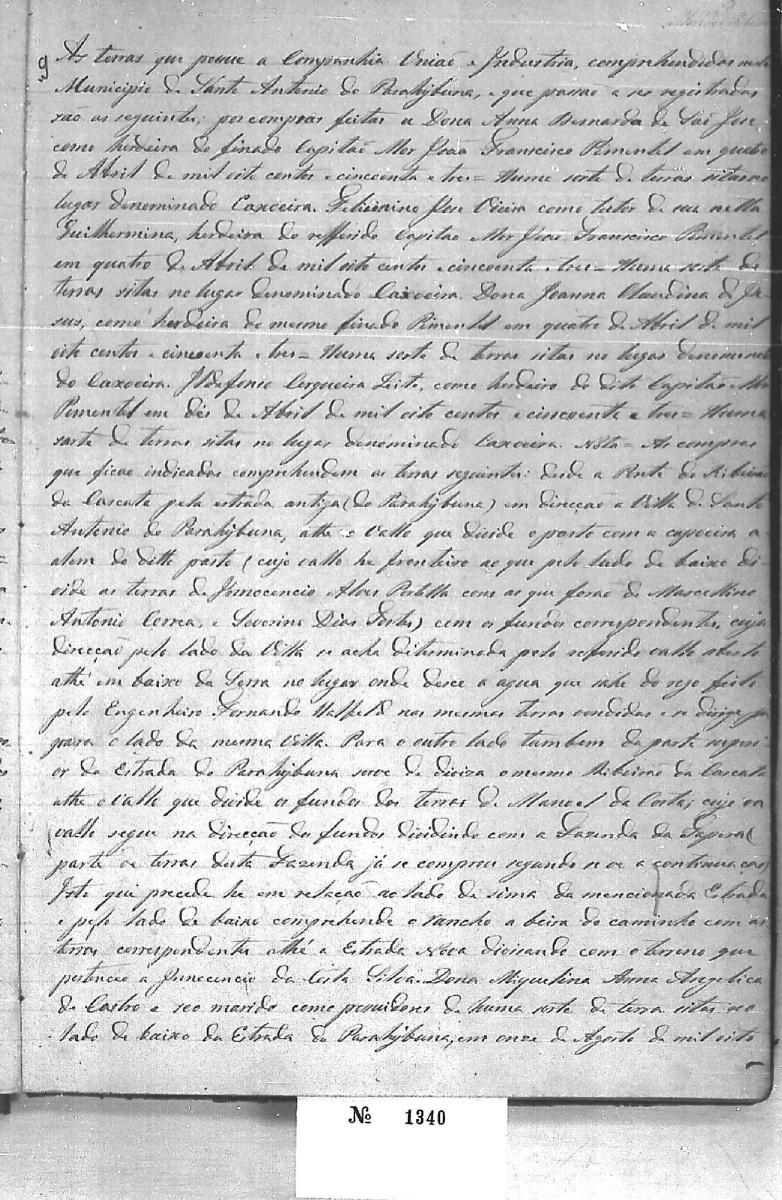 9 As terras que possue a Companhia União e Industria, comprehendidas neste
Municipio de Santo Antonio do Parahybuna, e que passão a ser registradas
são as seguintes; por compras feitas a Dona Anna Bernarda de São Jose
como herdeira do finado Capitão Mor João Francisco Pimentel em quatro
de Abril de mil oito centos e cincoenta e tres = Huma sorte de terras sitas no
lugar denominado Caxoeira. Feliciano Jose Vieira como tutor de sua netta
Guilhermina, herdeira do refferido Capitão Mor João Francisco Pimentel
em quatro de Abril de mil oito centos e cincoenta e tres = Huma sorte de
terras sitas no lugar denominado Caixoeira. Dona Joanna Claudina de Je-
sus, como herdeira do mesmo finado Pimentel em quatro de Abril de mil
oito centos e cincoenta e tres = Huma sorte de terras sitas no lugar denomina-
do Caxoeira. Ildefonso Cerqueira Leite, como herdeiro do dito Capitão Mor
Pimentel em dês de Abril de mil oito centos e cincoenta e tres = Huma
sorte de terras sitas no lugar denominado Caxoeira. Nóta = As compras
que ficão indicadas comprehendem as terras seguintes: desde a Ponte do Ribeirão
da Cascata pela estrada antiga (do Parahybuna) em direcção a Villa de Santo
Antonio do Parahybuna, athe o Vallo que divide o pasto com a capoeira a-
alem do ditto pasto (cujo vallo he fronteiro ao que pelo lado de baixo di-
vide as terras de Innocencio Alves Portella com as que forão de Marcellino
Antonio Correa, e Severino Dias Fortes) com os fundos correspondentes, cuja
direcção pelo lado da Villa se acha ditterminada pelo referido vallo aberto
athé em baixo da Serra no lugar onde desce a agua que sahe do rego feito
pelo Engenheiro Fernando Halfeld nas mesmas terras vendidas e se dirige pa
para o lado da mesma Villa. Para o outro lado tambem da parte superi-
or da Estrada do Parahybuna serve de diviza o mesmo Ribeirão da Cascata
athe o Vallo que divide os fundos das terras de Manoel da Costa; cujo va
vallo segue na direcção dos fundos dividindo com a Fazenda da Tapera (
parte de terras desta Fazenda já se comprou segundo se ve a continuação)
Isto que precede he em relação ao lado de sima da mencionada Estrada
e pelo lado de baixo comprehende o rancho a beira do caminho com as
terras correspondentes athé a Estrada Nova divisando com o terreno que
pertenceo a Innocencio da Costa Silva. Dona Miquelina Anna Angelica
de Castro e seo marido como possuidores de huma sorte de terra sitas no
lado de baixo da Estrada do Parahybuna, em onze de Agosto de mil oito
Nº 1340